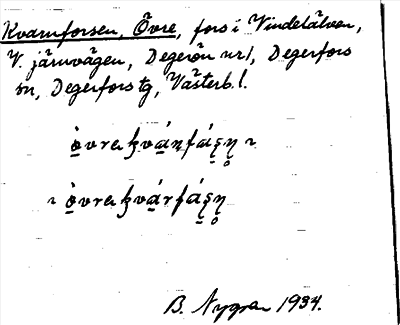 Kvarnforsen, Övre, fors i Vindelälven,
V. järnvägen, Degerön nr 1, Degerfors
sn, Degerfors tg, Västerb. l.
B. Nygren 1934.